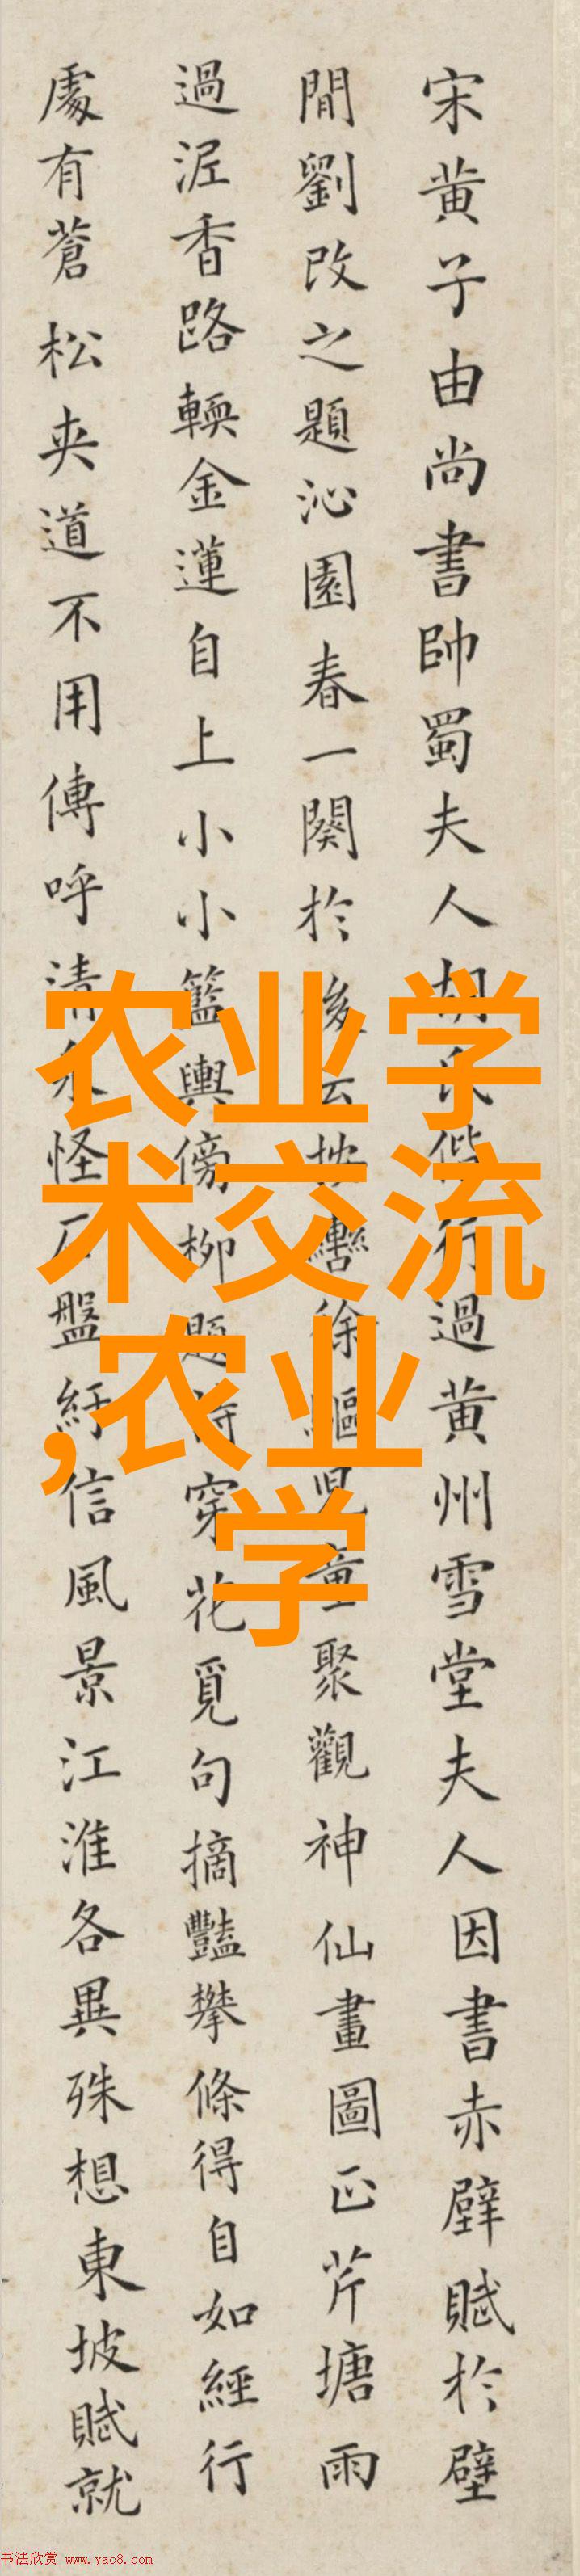 宋黄子由尚書帥蜀夫人胡氏偕行過黄州雪堂夫人因書赤壁賦於壁
間劉改之題沁園春一闋於後云按轡徐驅兒童聚觀神仙畫圖正芹塘雨
過泥香路輭金蓮自上小小籃輿傍柳題詩穿花覓句摘豔攀條得自如經行
處有蒼松夾道不用傳呼清泉怪石盤紆信風景江淮各異殊想東坡賦就
农业学
术交流
,农业
学
书法欣赏 www.yac8.com